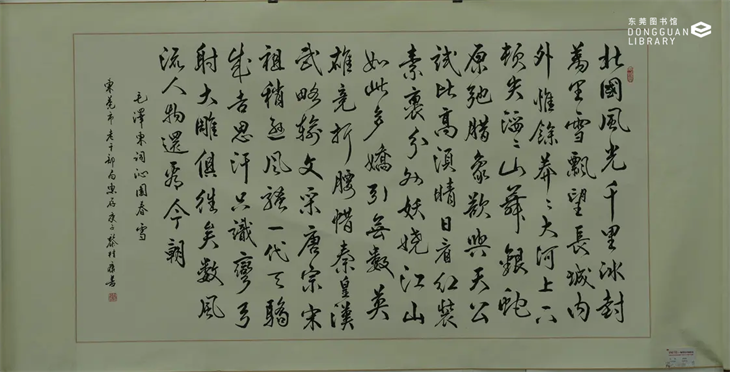 东莞图书馆
DONGGUAN
LIBRARY
北國風光千里冰封
萬里雪飄望長城内
外惟餘莽〻大河上下
頓失滔〻山舞銀蛇
原馳腊象欲與天公
試比高須晴日看红裝
素裹分外妖嬈江山
如此多嬌引無數英
雄竞折腰惜秦皇漢
武略输文采唐宗宋
祖稍遜風騷一代天驕
成吉思汗只識彎弓
射大雕俱往矣數風
流人物還看今朝
毛澤東詞沁園春雪
東莞市老干部局